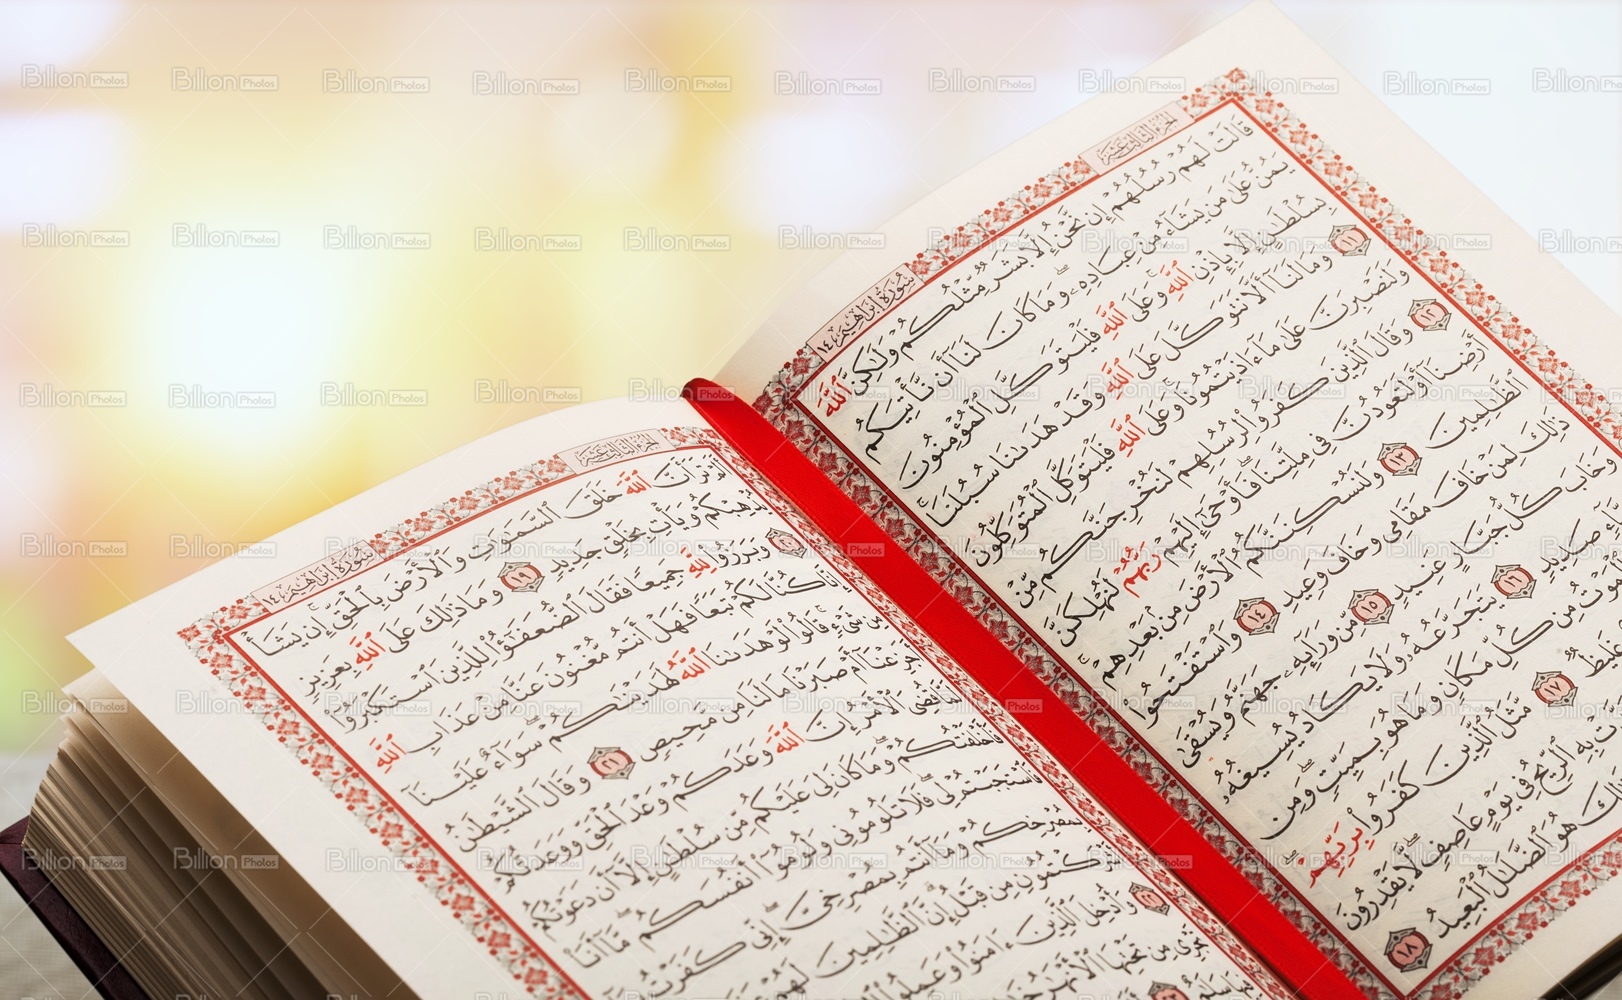 الجزء الثالث عشر
سُورَةُ إِبْرَاهِيمَ ١٤
قَالَتْ لَهُمْ رُسُلُهُمْ إِن نَّحْنُ إِلَّا بَشَرٌ مِّثْلُكُمْ وَلَٰكِنَّ ٱللَّهَ
يَمُنُّ عَلَىٰ مَن يَشَآءُ مِنْ عِبَادِهِۦ وَمَا كَانَ لَنَآ أَن نَّأْتِيَكُم
بِسُلْطَٰنٍ إِلَّا بِإِذْنِ ٱللَّهِ وَعَلَى ٱللَّهِ فَلْيَتَوَكَّلِ ٱلْمُؤْمِنُونَ
١١ وَمَا لَنَآ أَلَّا نَتَوَكَّلَ عَلَى ٱللَّهِ وَقَدْ هَدَىٰنَا سُبُلَنَا
وَلَنَصْبِرَنَّ عَلَىٰ مَآ ءَاذَيْتُمُونَا وَعَلَى ٱللَّهِ فَلْيَتَوَكَّلِ ٱلْمُتَوَكِّلُونَ
١٢ وَقَالَ ٱلَّذِينَ كَفَرُوا۟ لِرُسُلِهِمْ لَنُخْرِجَنَّكُم مِّنْ
أَرْضِنَآ أَوْ لَتَعُودُنَّ فِى مِلَّتِنَا فَأَوْحَىٰٓ إِلَيْهِمْ رَبُّهُمْ لَنُهْلِكَنَّ
ٱلظَّٰلِمِينَ ١٣ وَلَنُسْكِنَنَّكُمُ ٱلْأَرْضَ مِنۢ بَعْدِهِمْ
ذَٰلِكَ لِمَنْ خَافَ مَقَامِى وَخَافَ وَعِيدِ ١٤ وَٱسْتَفْتَحُوا۟
وَخَابَ كُلُّ جَبَّارٍ عَنِيدٍ ١٥ مِّن وَرَآئِهِۦ جَهَنَّمُ وَيُسْقَىٰ
صَدِيدٍ ١٦ يَتَجَرَّعُهُۥ وَلَا يَكَادُ يُسِيغُهُۥ
مِن كُلِّ مَكَانٍ وَمَا هُوَ بِمَيِّتٍ وَمِن
غَلِيظٌ ١٧ مَّثَلُ ٱلَّذِينَ كَفَرُوا۟ بِرَبِّهِمْ
بِهِ ٱلرِّيحُ فِى يَوْمٍ عَاصِفٍ لَّا يَقْدِرُونَ
هُوَ ٱلضَّلَٰلُ ٱلْبَعِيدُ ١٨
الجزء الثالث عشر
سُورَةُ إِبْرَاهِيمَ ١٤
أَلَمْ تَرَ أَنَّ ٱللَّهَ خَلَقَ ٱلسَّمَٰوَٰتِ وَٱلْأَرْضَ بِٱلْحَقِّ إِن يَشَأْ
يُذْهِبْكُمْ وَيَأْتِ بِخَلْقٍ جَدِيدٍ ١٩ وَمَا ذَٰلِكَ عَلَى ٱللَّهِ بِعَزِيزٍ
٢٠ وَبَرَزُوا۟ لِلَّهِ جَمِيعًا فَقَالَ ٱلضُّعَفَٰٓؤُا۟ لِلَّذِينَ ٱسْتَكْبَرُوٓا۟
إِنَّا كُنَّا لَكُمْ تَبَعًا فَهَلْ أَنتُم مُّغْنُونَ عَنَّا مِنْ عَذَابِ ٱللَّهِ
مِن شَىْءٍ قَالُوا۟ لَوْ هَدَىٰنَا ٱللَّهُ لَهَدَيْنَٰكُمْ سَوَآءٌ عَلَيْنَآ
أَجَزِعْنَآ أَمْ صَبَرْنَا مَا لَنَا مِن مَّحِيصٍ ٢١ وَقَالَ ٱلشَّيْطَٰنُ
قُضِىَ ٱلْأَمْرُ إِنَّ ٱللَّهَ وَعَدَكُمْ وَعْدَ ٱلْحَقِّ وَوَعَدتُّكُمْ
فَأَخْلَفْتُكُمْ وَمَا كَانَ لِىَ عَلَيْكُم مِّن سُلْطَٰنٍ إِلَّآ أَن دَعَوْتُكُمْ
فَٱسْتَجَبْتُمْ لِى فَلَا تَلُومُونِى وَلُومُوٓا۟ أَنفُسَكُم مَّآ أَنَا۠
بِمُصْرِخِكُمْ وَمَآ أَنتُم بِمُصْرِخِىَّ إِنِّى كَفَرْتُ
أَشْرَكْتُمُونِ مِن قَبْلُ إِنَّ ٱلظَّٰلِمِينَ لَهُمْ
٢٢ وَأُدْخِلَ ٱلَّذِينَ ءَامَنُوا۟ وَعَمِلُوا۟
تَجْرِى مِن تَحْتِهَا ٱلْأَنْهَٰرُ